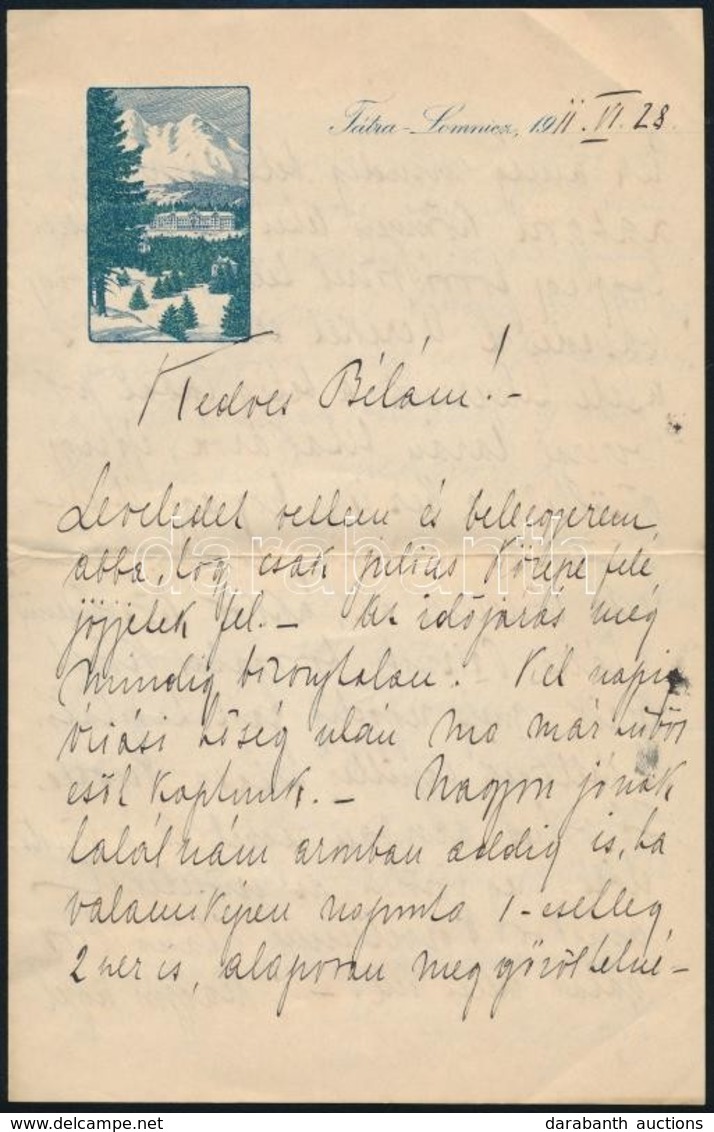 Tátra-Lomnicz, 1911. VI. 28.
Kedves Bélám! -
Leveledet vettem és beleegyezem
abba, hogy csak julius közepe felé
jöjjetek fel. - Az időjárás még
mindig bizonytalan. Két napi
óriási hőség után ma már hűvös
esőt kaptunk. - Nagyon jónak
találnám azonban addig is, ha
valamiképen naponta 1-esetleg
2 szer is, alaposan meggőzöltetné-
darabanth
darabanth auctions